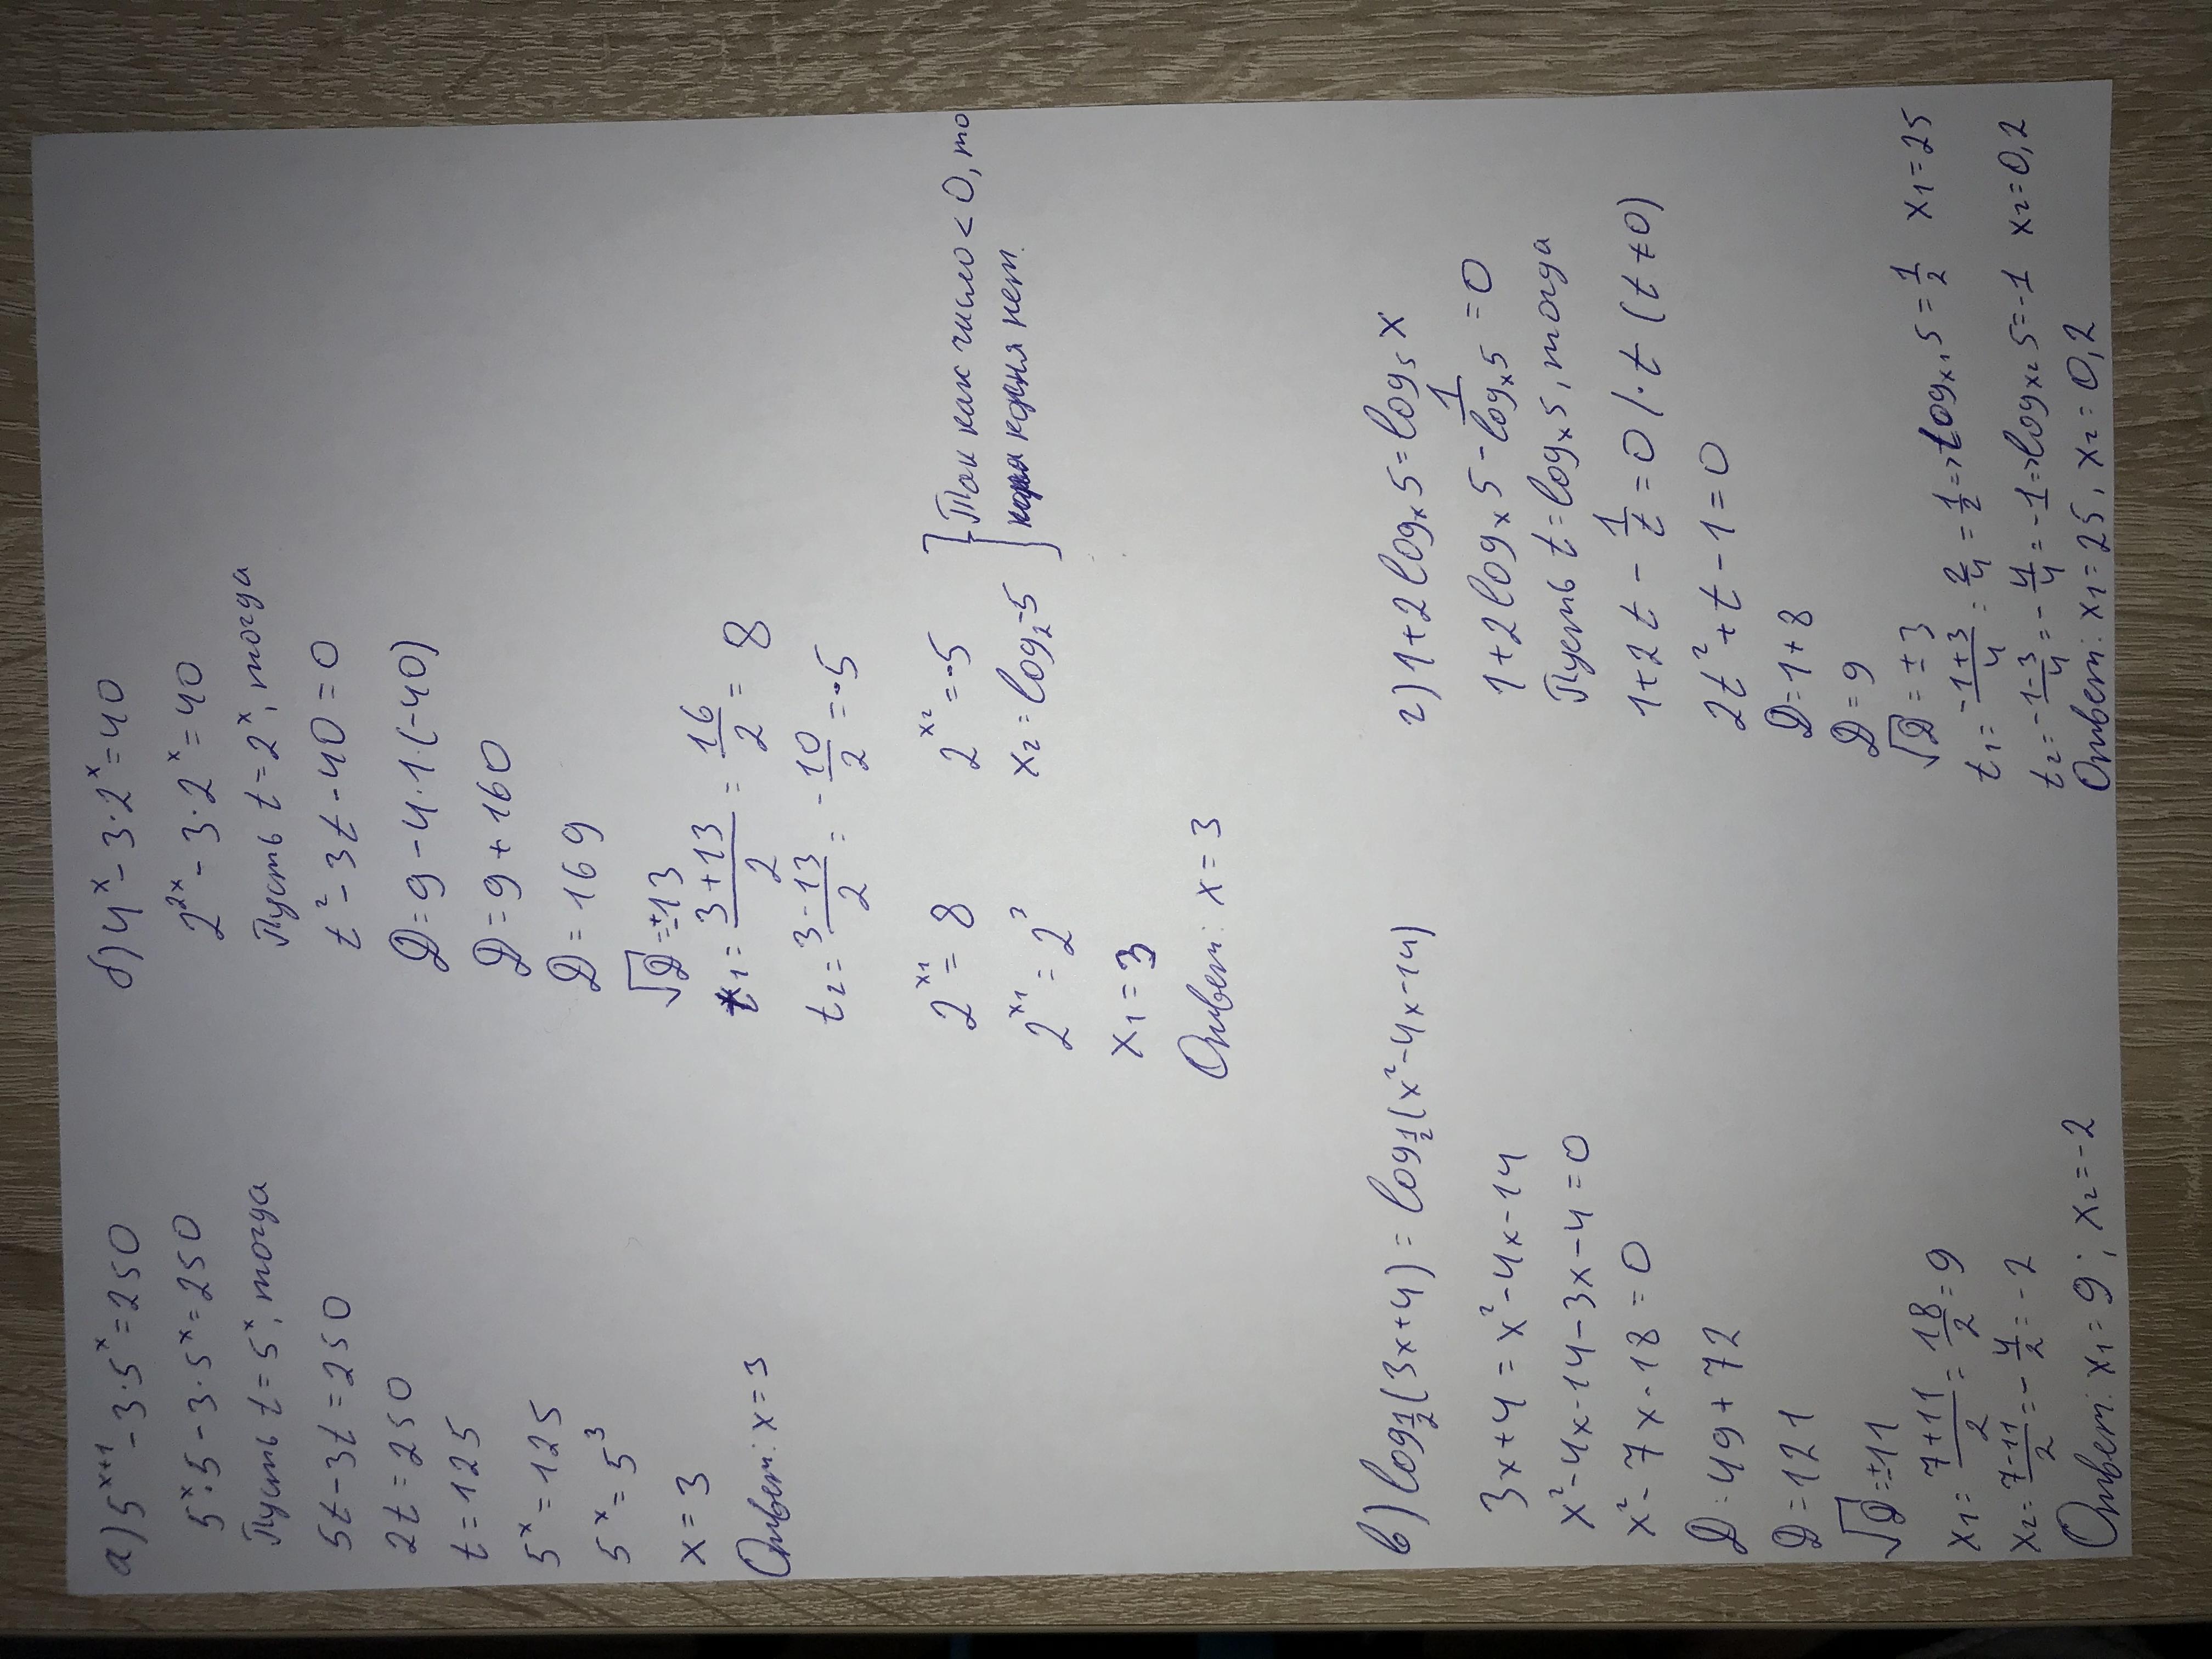 а) 5^(x+1) - 3·5^x = 250
5^x·5 - 3·5^x = 250
Пусть t = 5^x, тогда
5t - 3t = 250
2t = 250
t = 125
5^x = 125
5^x = 5^3
x = 3
Ответ: x = 3
б) 4^x - 3·2^x = 40
2^(2x) - 3·2^x = 40
Пусть t = 2^x, тогда
t² - 3t - 40 = 0
D = 9 - 4·1·(-40)
D = 9 + 160
D = 169
√D = ±13
t₁ = (3+13)/2 = 16/2 = 8
t₂ = (3-13)/2 = -10/2 = -5
2^(x₁) = 8 2^(x₂) = -5 } Так как число < 0, то
2^(x₁) = 2^3 x₂ = log₂-5 } корня нет.
x₁ = 3
Ответ: x = 3
в) log_(1/2)(3x+4) = log_(1/2)(x²-4x-14)
3x+4 = x²-4x-14
x²-4x-14-3x-4=0
x²-7x-18=0
D = 49+72
D = 121
√D = ±11
x₁ = (7+11)/2 = 18/2 = 9
x₂ = (7-11)/2 = -4/2 = -2
Ответ: x₁ = 9; x₂ = -2
г) 1+2log_x 5 = log₅ x
1+2log_x 5 - 1/(log_x 5) = 0
Пусть t = log_x 5, тогда
1+2t - 1/t = 0 |·t (t≠0)
2t²+t-1=0
D = 1+8
D = 9
√D = ±3
t₁ = (-1+3)/4 = 2/4 = 1/2 => log_(x₁) 5 = 1/2 x₁ = 25
t₂ = (-1-3)/4 = -4/4 = -1 => log_(x₂) 5 = -1 x₂ = 0,2
Ответ: x₁ = 25, x₂ = 0,2